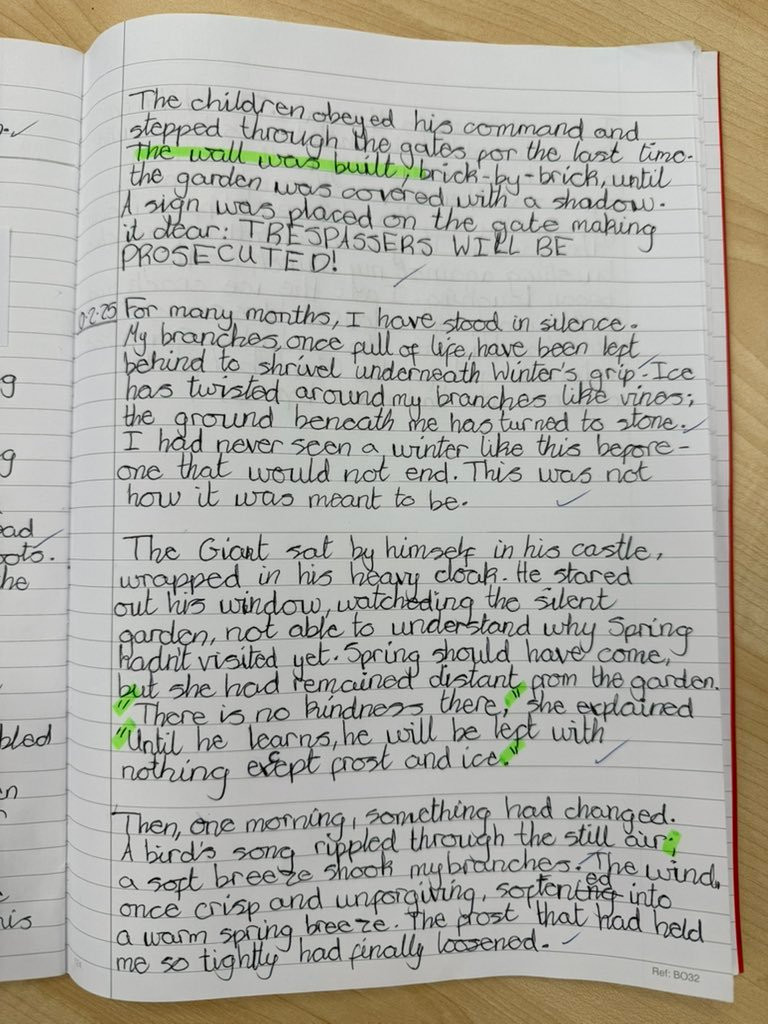 The children obeyed his command and
stepped through the gates for the last time.
The wall was built, brick-by-brick, until
the garden was covered with a shadow.
A sign was placed on the gate making
it clear: TRESPASSERS WILL BE
PROSECUTED!
For many months, I have stood in silence.
My branches, once full of life, have been left
behind to shrivel underneath Winter's grip. Ice
has twisted around my branches like vines;
the ground beneath me has turned to stone.
I had never seen a winter like this before -
one that would not end. This was not
how it was meant to be.
The Giant sat by himself in his castle,
wrapped in his heavy cloak. He stared
out his window, watching the silent
garden, not able to understand why Spring
hadn't visited yet. Spring should have come,
but she had remained distant from the garden.
"There is no kindness there," she explained
"Until he learns, he will be left with
nothing exept frost and ice."
Then, one morning, something had changed.
A bird's song rippled through the still air;
a soft breeze shook my branches. The wind,
once crisp and unforgiving, softened into
a warm spring breeze. The frost that had held
me so tightly had finally loosened.
Ref: BO32